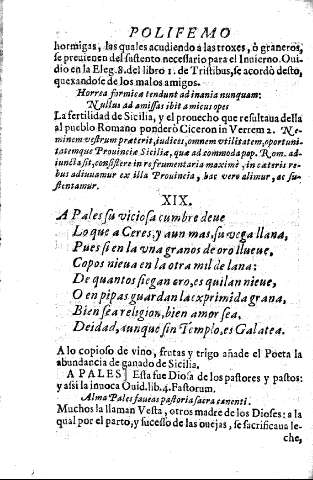 POLIFEMO
hormigas, las quales acudiendo a las troxes, ò graneros,
se preuienen del sustento necessario para el Inuierno. Oui-
dio en la Eleg. 8. del libro 1. de Tristibus, se acordò desto,
quexandose de los malos amigos.
Horrea formicæ tendunt ad inania nunquam:
Nullus ad amissas ibit amicus opes
La fertilidad de Sicilia, y el prouecho que resultaua della
al pueblo Romano ponderò Ciceron in Verrem 2. Ne-
minem vestrum præterit, iudices, omnem vtilitatem, oportuni-
tatemque Prouinciæ Siciliæ, quæ ad commoda pop. Rom. ad-
iuncta sit, consistere in re frumentaria maximè, in cæteris re-
bus adiuuamur ex illa Prouincia, hac vero alimur, ac su-
stentamur.
XIX.
A Pales su viciosa cumbre deue
Lo que a Ceres, y aun mas, su vega llana,
Pues si en la vna granos de oro llueue,
Copos nieua en la otra mil de lana:
De quantos siegan oro, es quilan nieue,
O en pipas guardan la exprimida grana,
Bien sea religion, bien amor sea,
Deidad, aunque sin Templo, es Galatea.
A lo copioso de vino, frutas y trigo añade el Poeta la
abundancia de ganado de Sicilia.
A PALES] Esta fue Diosa de los pastores y pastos:
y assi la inuoca Ouid. lib. 4. Fastorum.
Alma Pales faueas pastoria sacra canenti.
Muchos la llaman Vesta, otros madre de los Dioses: a la
qual por el parto, y sucesso de las ouejas, se sacrificaua le-
che,